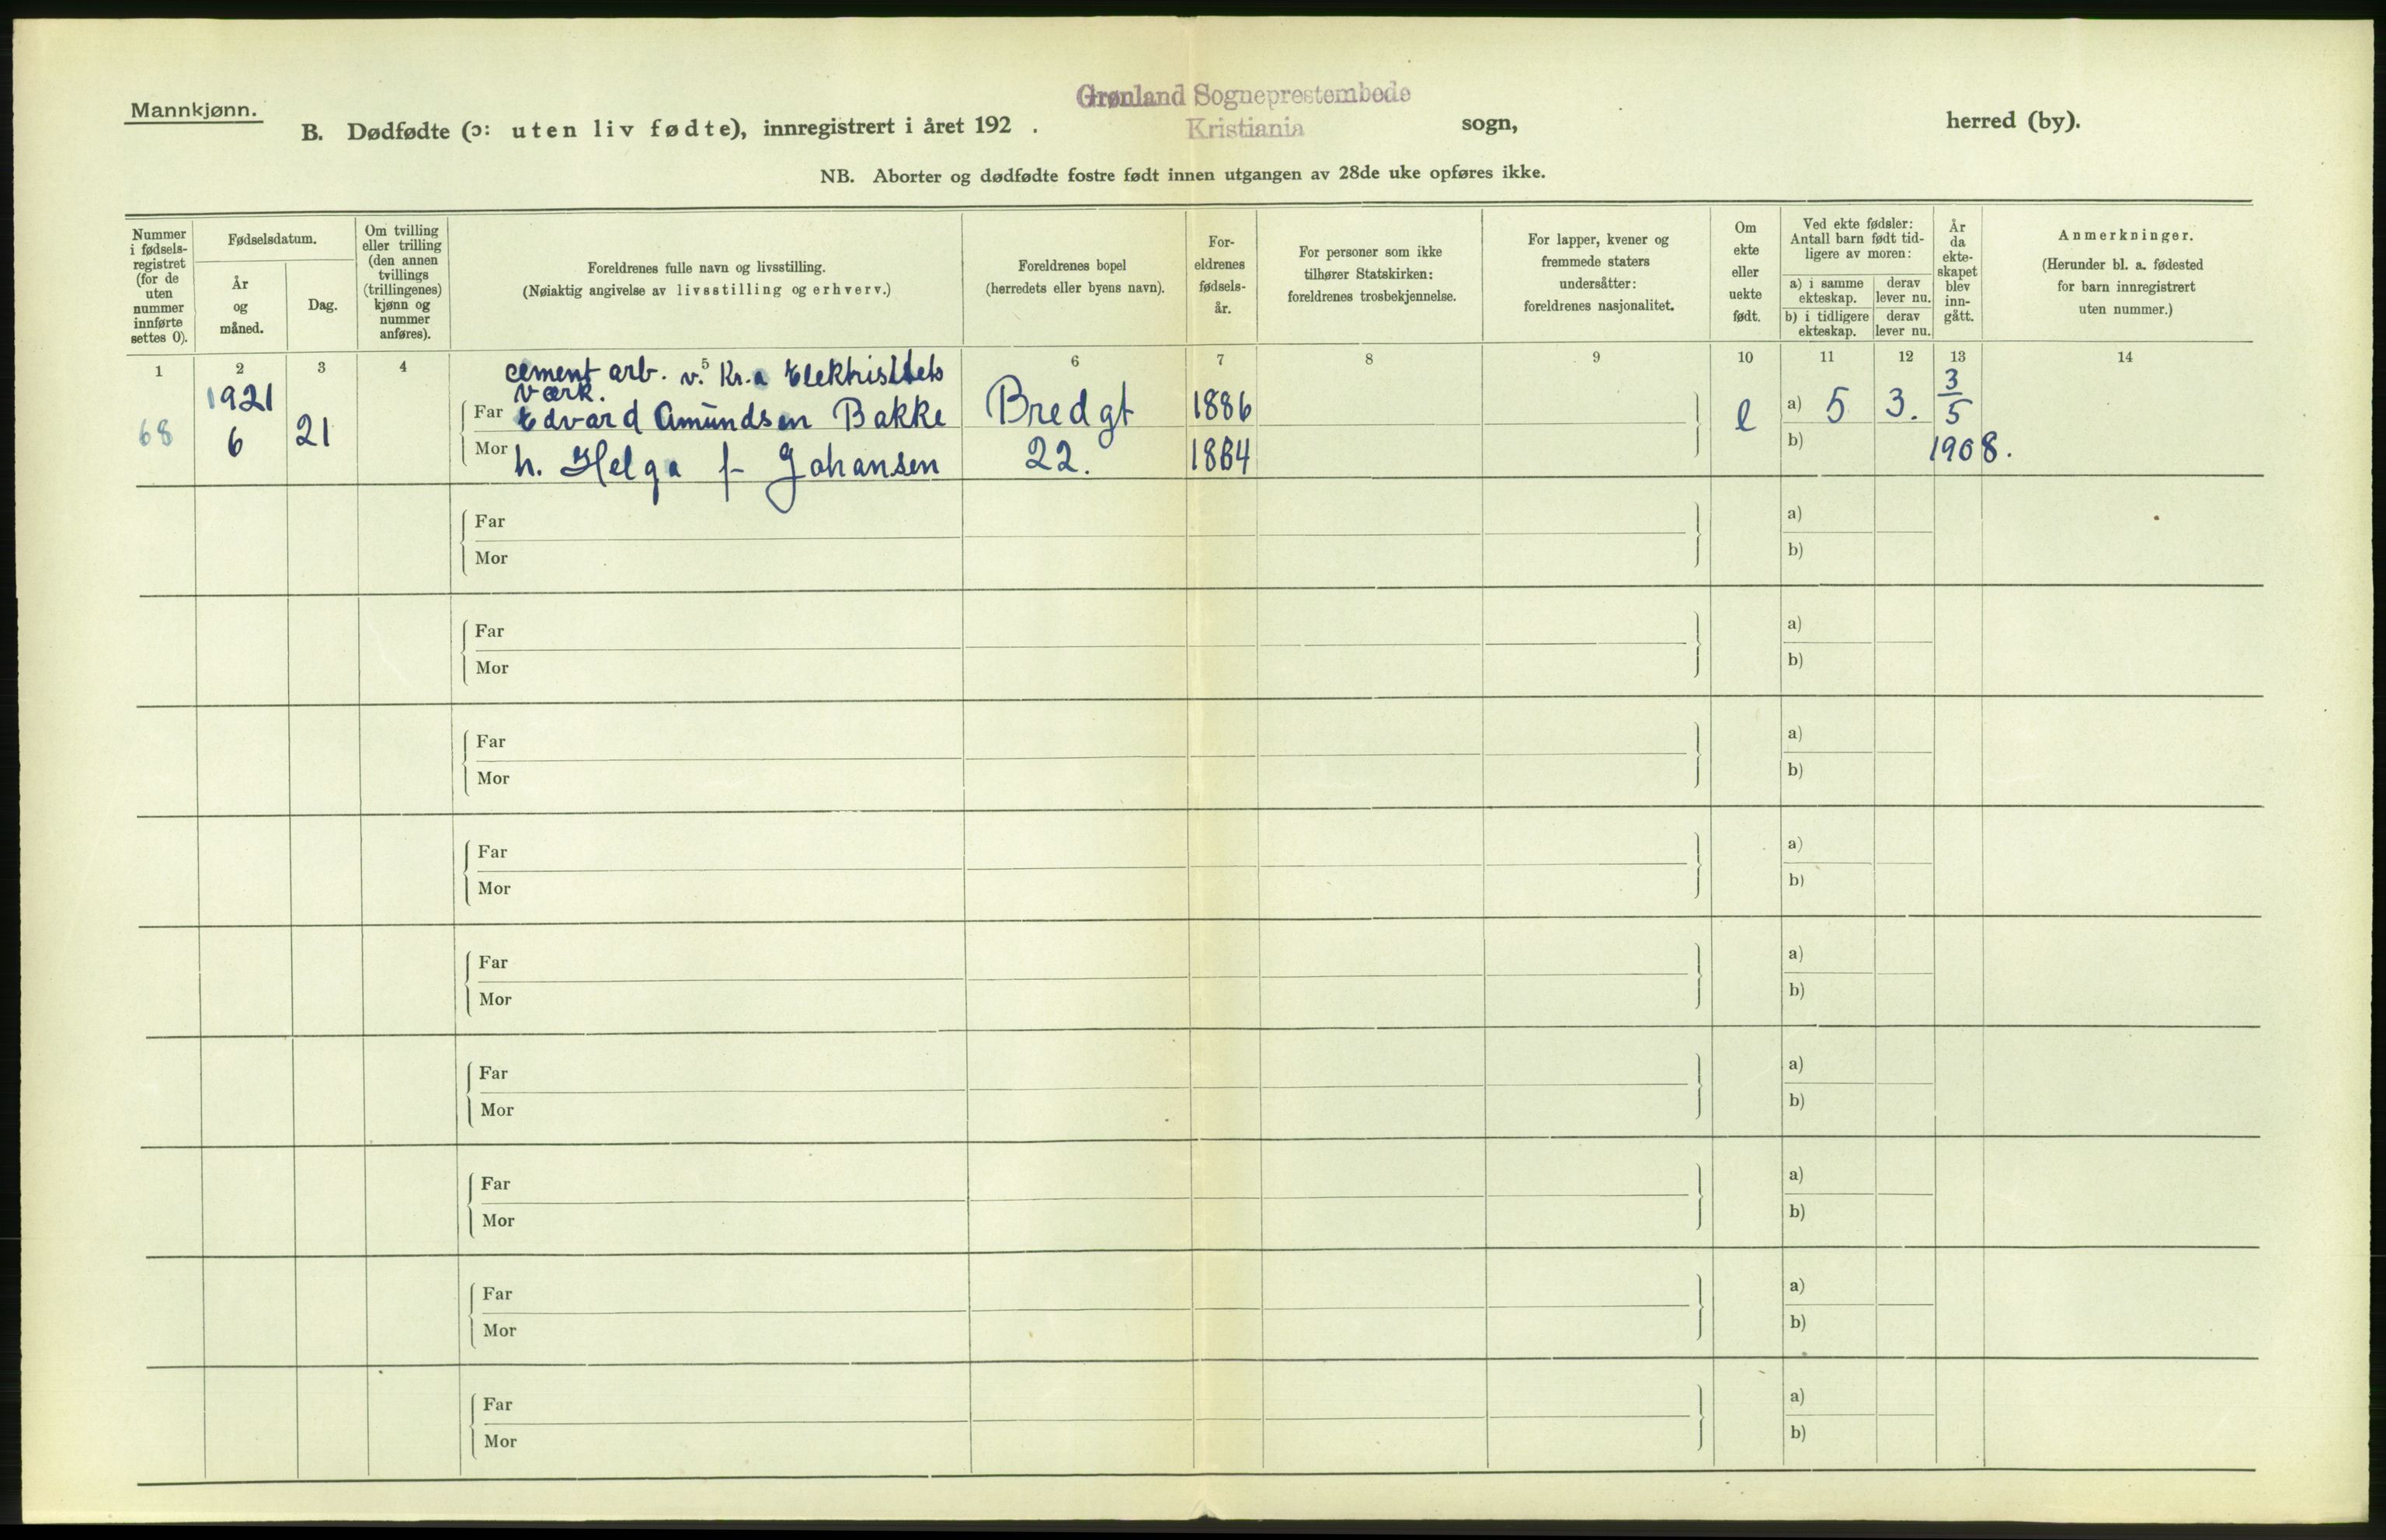 Mannkjønn.
Grønland Sogneprestembede
Kristiania
B. Dødfødte (ɔ: uten liv fødte), innregistrert i året 192 . sogn, herred (by).
NB. Aborter og dødfødte fostre født innen utgangen av 28de uke opføres ikke.
Nummer
i fødsels-
registret
(for de
uten
nummer
innførte
settes 0).
Fødselsdatum.
År
og
måned.
Dag.
Om tvilling
eller trilling
(den annen
tvillings
(trillingenes)
kjønn og
nummer
anføres).
Foreldrenes fulle navn og livsstilling.
(Nøiaktig angivelse av livsstilling og erhverv.)
Foreldrenes bopel
(herredets eller byens navn).
For-
eldrenes
fødsels-
år.
For personer som ikke
tilhører Statskirken:
foreldrenes trosbekjennelse.
For lapper, kvener og
fremmede staters
undersåtter:
foreldrenes nasjonalitet.
Om
ekte
eller
uekte
født.
Ved ekte fødsler:
Antall barn født tid-
ligere av moren:
a) i samme
ekteskap.
derav
lever nu.
b) i tidligere
ekteskap.
derav
lever nu.
År
da
ekte-
skapet
blev
inn-
gått.
Anmerkninger.
(Herunder bl. a. fødested
for barn innregistrert
uten nummer.)
1 2 3 4 5 6 7 8 9 10 11 12 13 14
cement arb. v. Kr.a Elektrisitets
værk.
68 1921 6 21
Far Edvard Amundsen Bakke Bredgt 1886 e a) 5 3. 3/5
Mor h. Helga f- Johansen 22. 1884 b) 1908.
Far a)
Mor b)
Far a)
Mor b)
Far a)
Mor b)
Far a)
Mor b)
Far a)
Mor b)
Far a)
Mor b)
Far a)
Mor b)
Far a)
Mor b)
Far a)
Mor b)